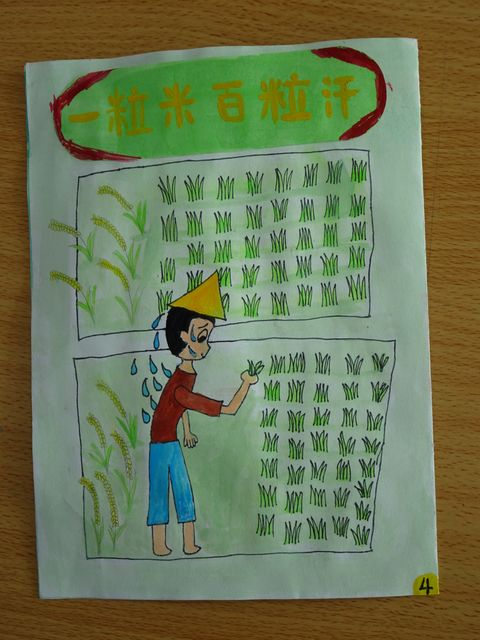 一粒米百粒汗
4